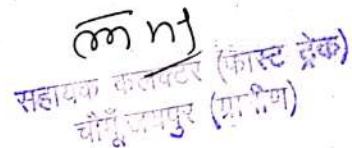 सहायक कलेक्टर (फास्ट ट्रेक)
चौमूँ जयपुर (ग्रामीण)